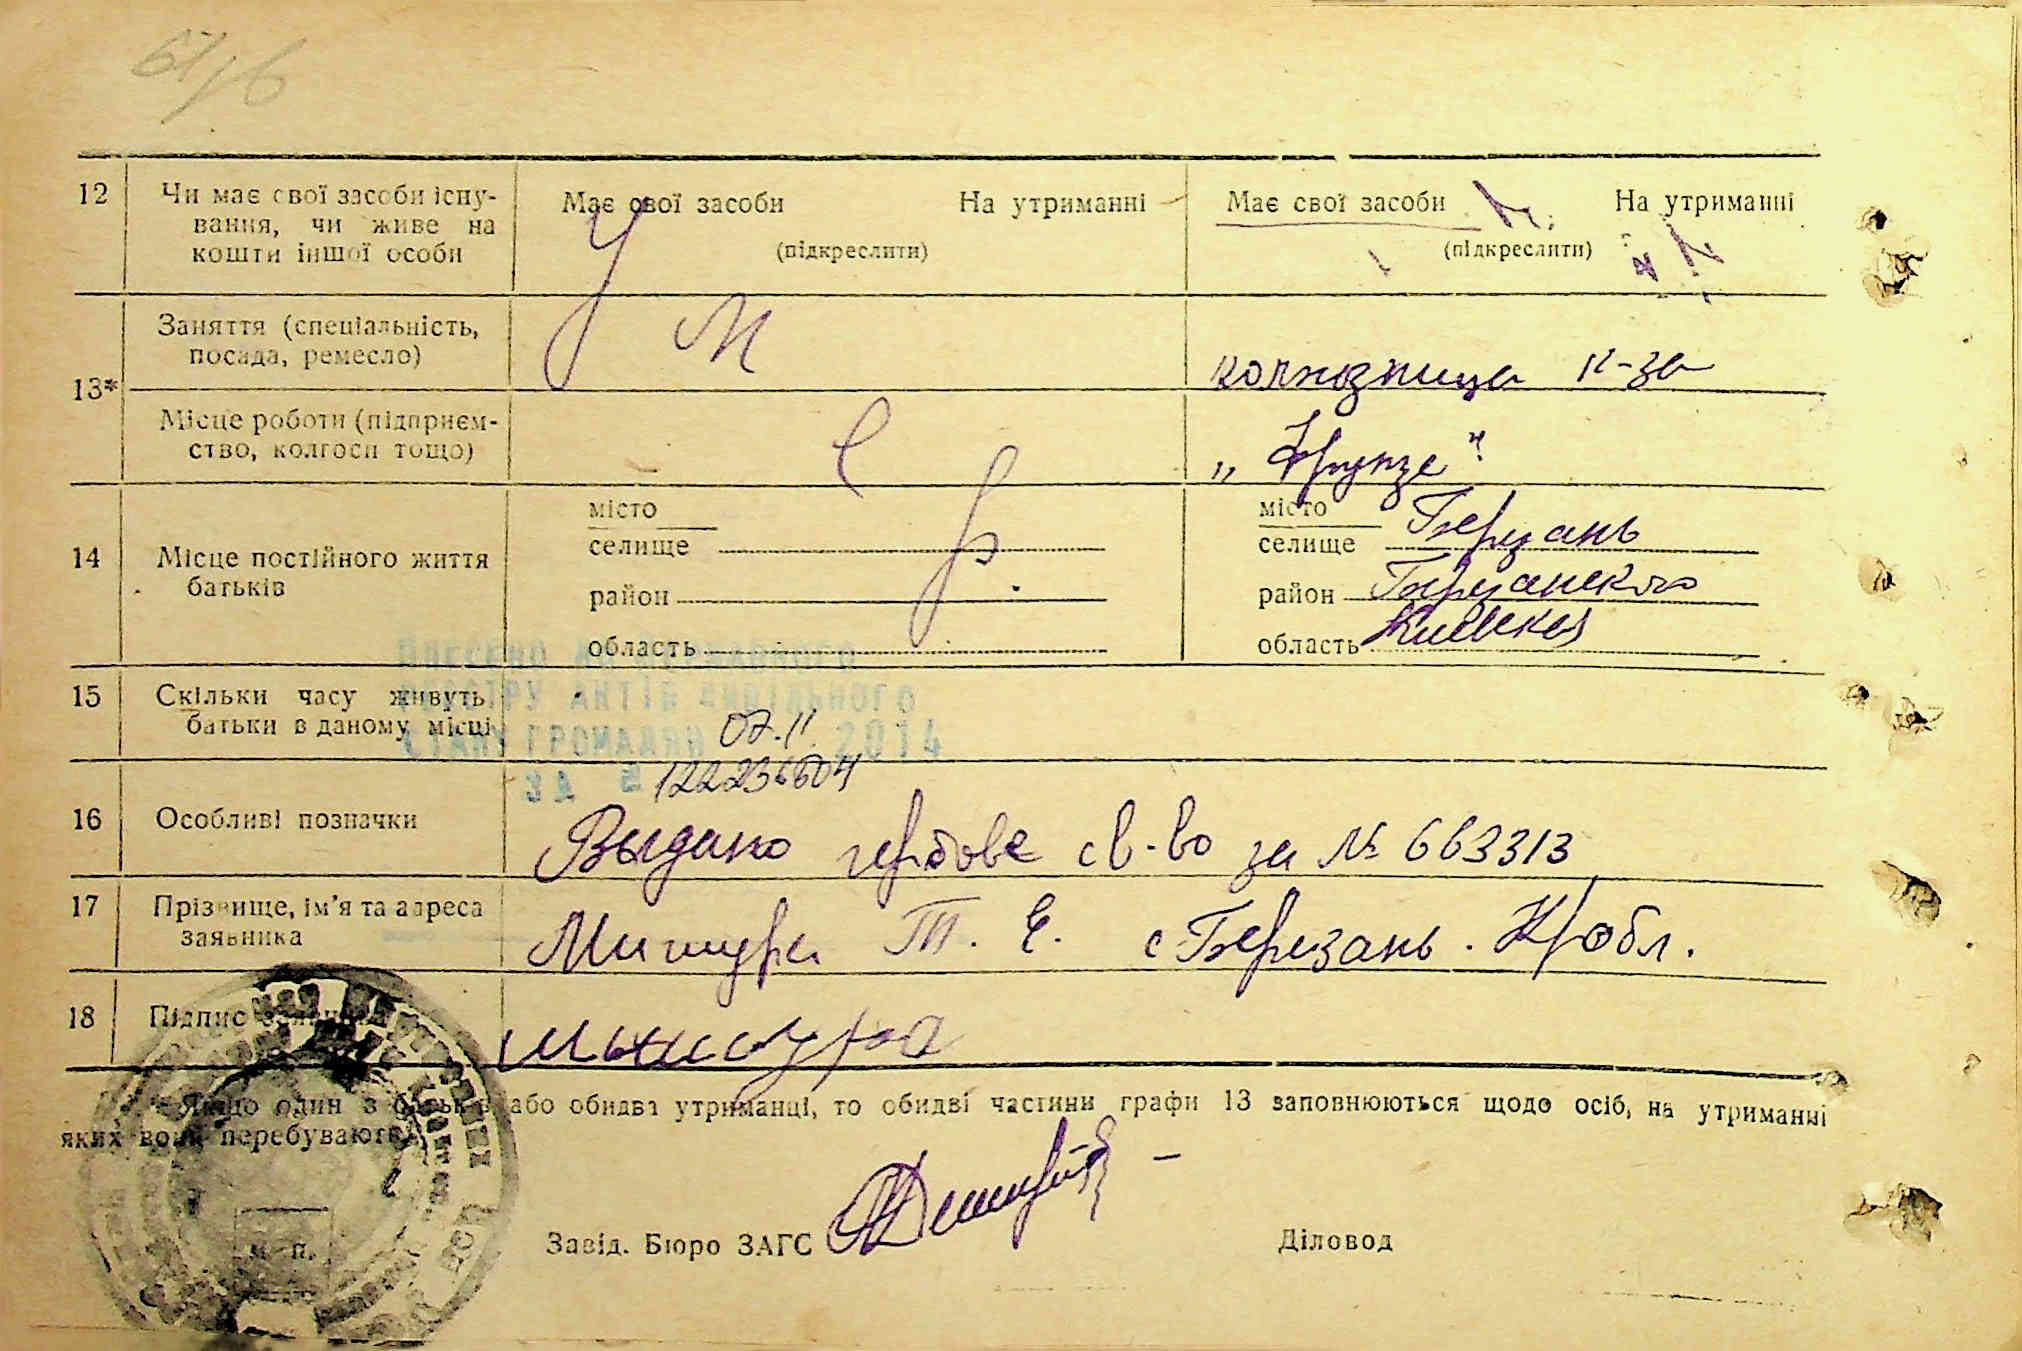 67/6
12 Чи має свої засоби існу-
вання, чи живе на
кошти іншої особи
Має свої засоби На утриманні
(підкреслити)
Має свої засоби На утриманні
(підкреслити)
13*
Заняття (спеціальність,
посада, ремесло)
колхозница к-за
Місце роботи (підприєм-
ство, колгосп тощо)
„Фрунзе"
14 Місце постійного життя
батьків
місто
селище
район
область
місто
селище Березань
район Березанского
область Киевская
15 Скільки часу живуть
батьки в даному місці
ВНЕСЕНО ДО ДЕРЖАВНОГО
РЕЄСТРУ АКТІВ ЦИВІЛЬНОГО
СТАНУ ГРОМАДЯН 07.11. 2014
ЗА № 122236604
16 Особливі позначки
Выдано гербове св-во за № 663313
17 Прізвище, ім'я та адреса
заявника
Мишура Т. Е. с Березань. К обл.
18 Підпис заявника
Мишура
* Якщо один з батьків або обидва утриманці, то обидві частини графи 13 заповнюються щодо осіб, на утриманні
яких вони перебувають.
м. п.
Завід. Бюро ЗАГС
Діловод